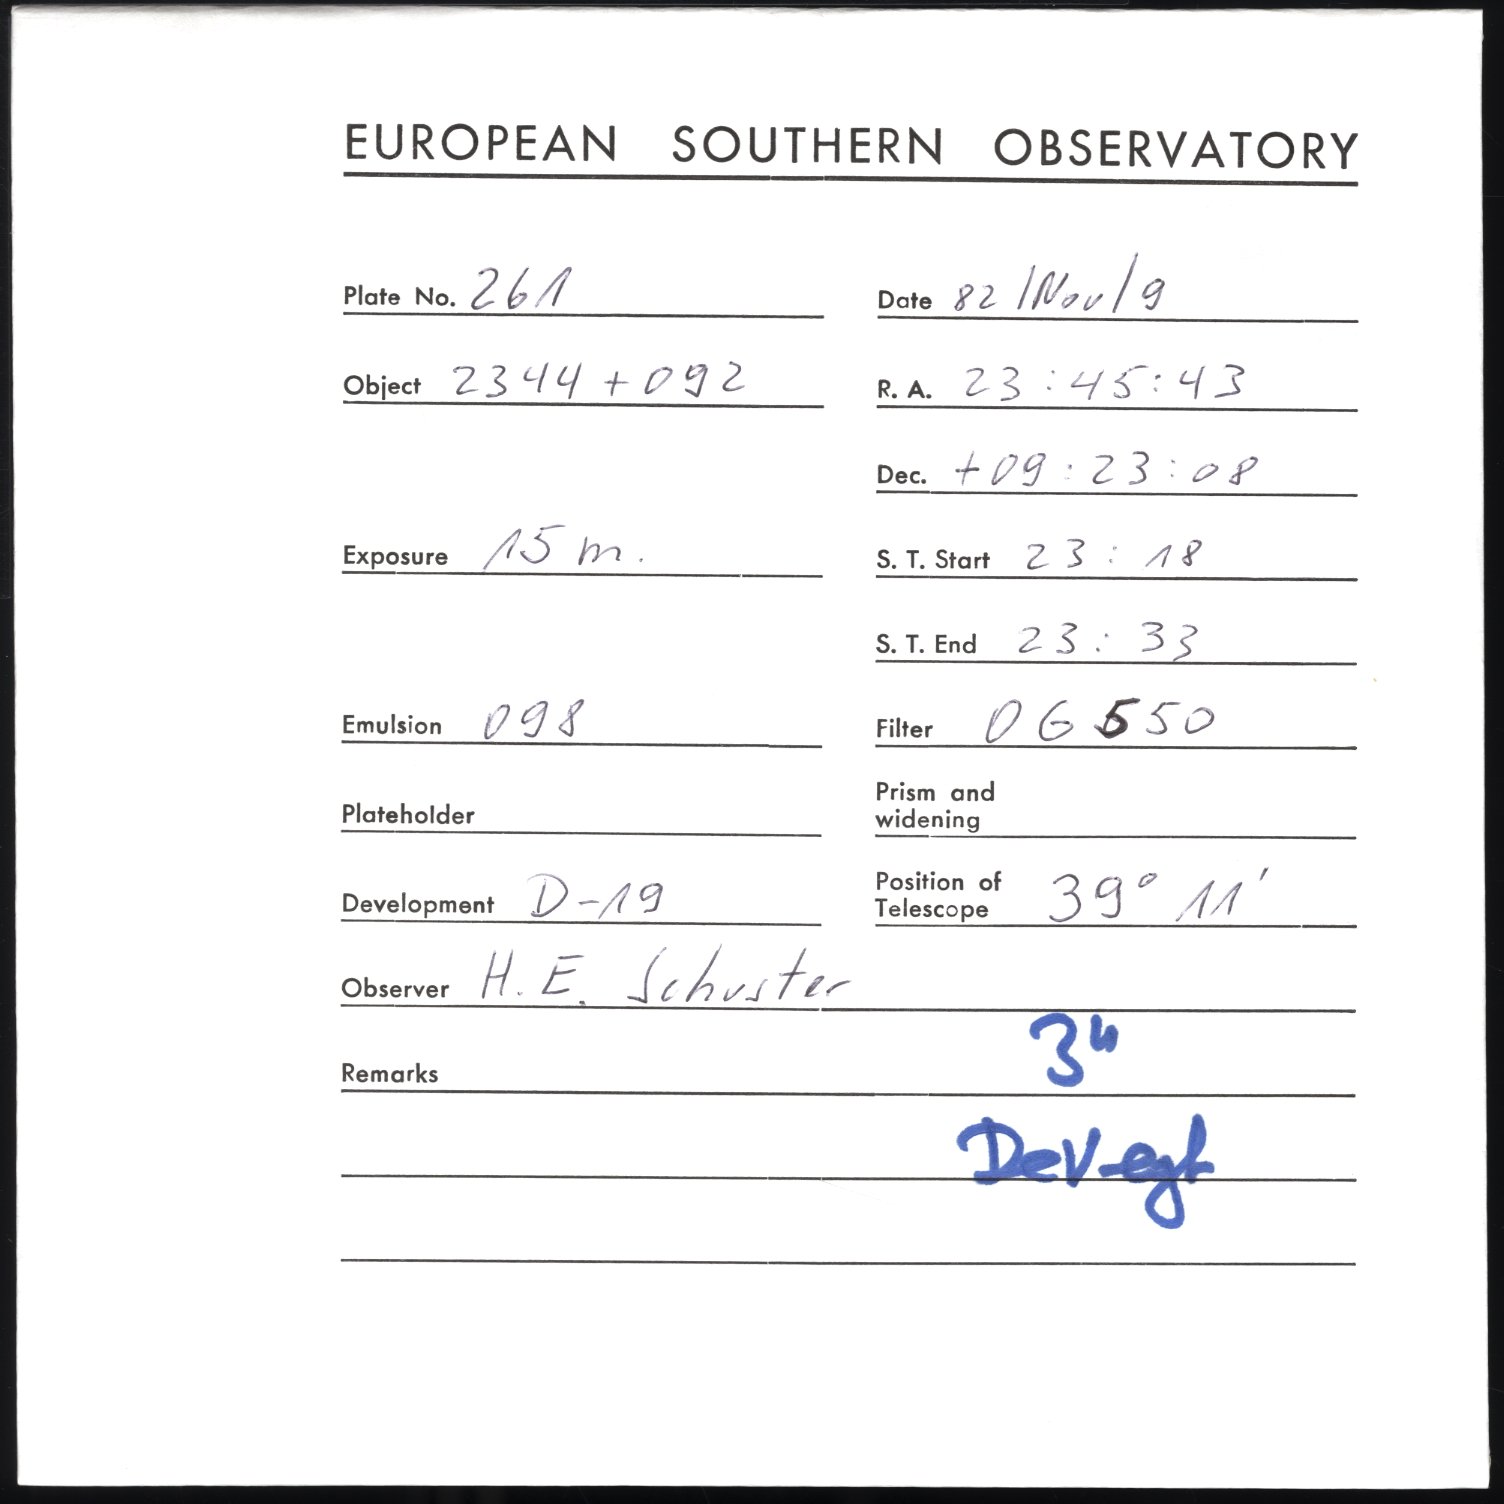 EUROPEAN SOUTHERN OBSERVATORY
Plate No. 261 Date 82/Nov/9
Object 2344+092 R. A. 23:45:43
Dec. +09:23:08
Exposure 15 m. S. T. Start 23:18
S. T. End 23:33
Emulsion 098 Filter OG 550
Plateholder Prism and
widening
Development D-19 Position of
Telescope 39° 11'
Observer H. E. Schuster
Remarks 3"
DeVegt